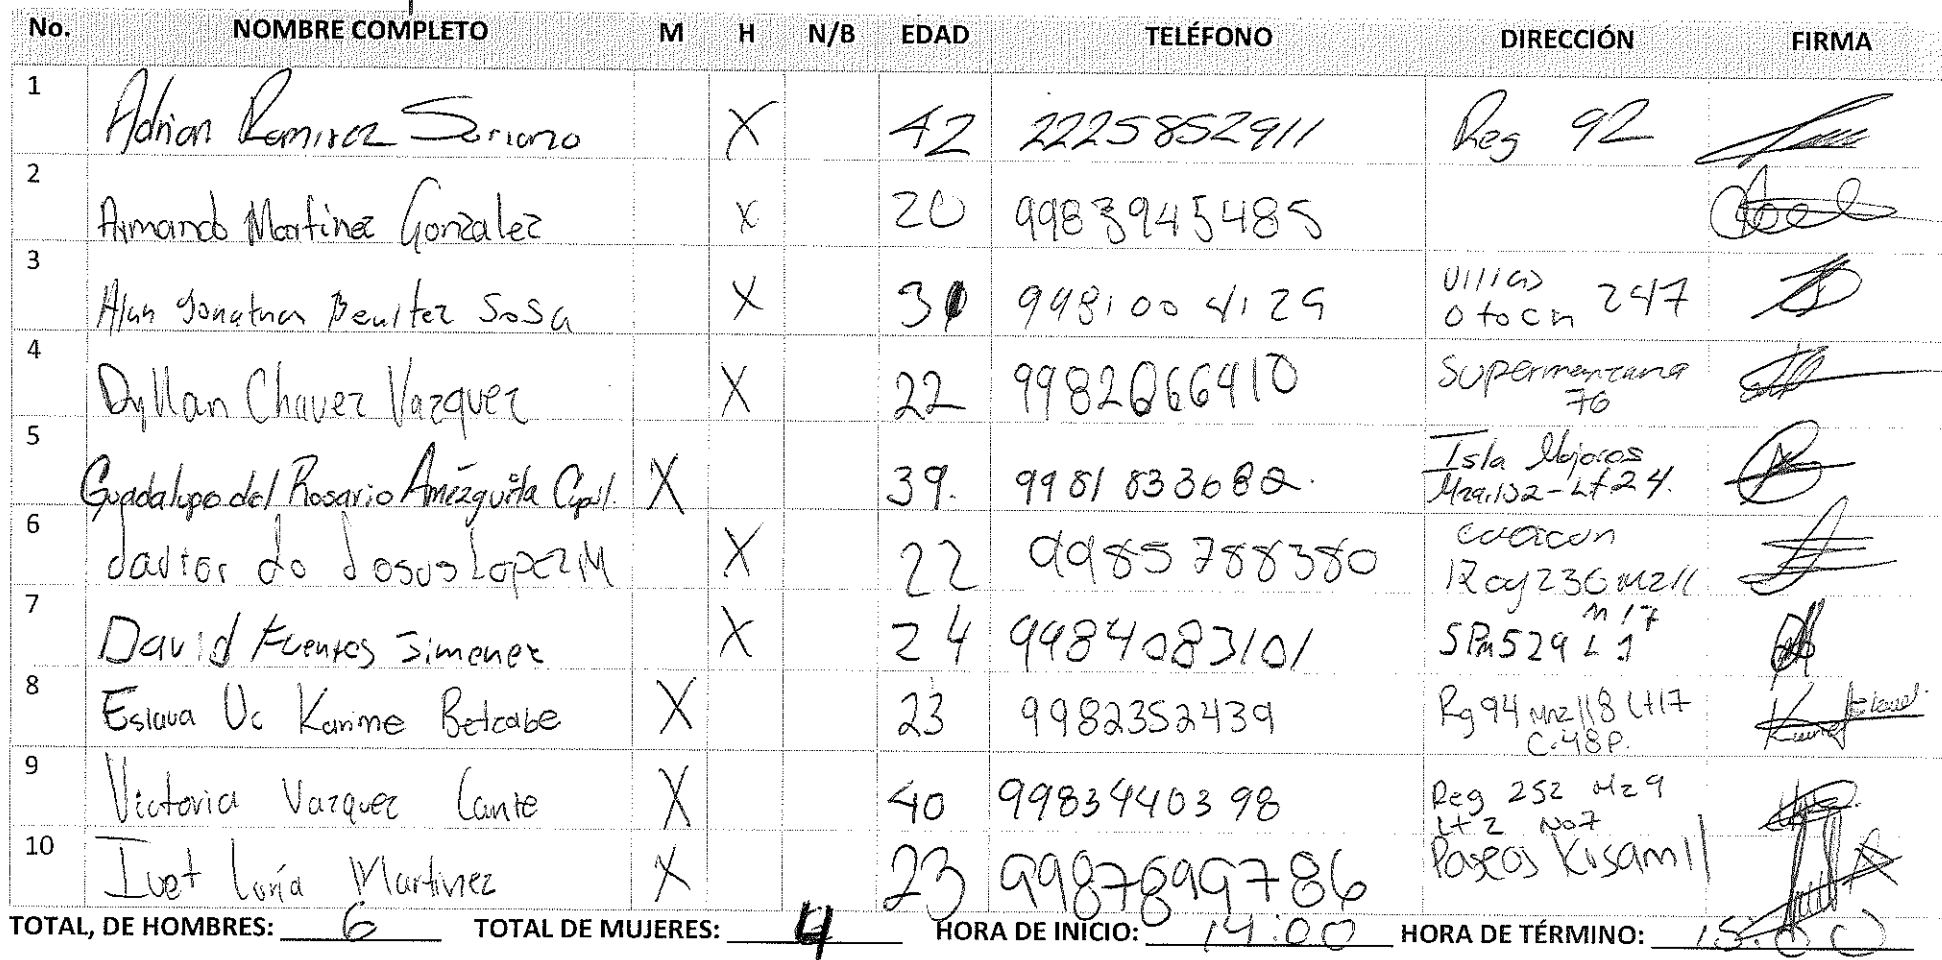 No. NOMBRE COMPLETO M H N/B EDAD TELÉFONO DIRECCIÓN FIRMA
1 Adrian Ramirez Soriano X 42 2225852911 Reg 92
2 Armando Martinez Gonzalez X 20 9983945485
3 Alan Jonathan Benitez Sosa X 31 9981004129 Villas Otoch 247
4 Dyllan Chavez Vazquez X 22 9982066410 Supermanzana 76
5 Guadalupe del Rosario Amézquita Cupul. X 39. 9981833682. Isla Mujeres Mza.132-Lt24.
6 Javier de Jesus Lopez M X 22 9985788380 236 Mz11
7 David Fuentes Jimenez X 24 9984083101 SPm529 L1 M17
8 Eslava Uc Karime Betzabe X 23 9982352439 Rg94 Mnz118 Lt17 C.48P.
9 Victoria Vazquez Cante X 40 9983440398 Reg 252 Mz9 Lt2 No7
10 Ivet Loría Martinez X 23 9987699786 Paseos Kusamil
TOTAL, DE HOMBRES: 6 TOTAL DE MUJERES: 4 HORA DE INICIO: 14:00 HORA DE TÉRMINO: 15:00